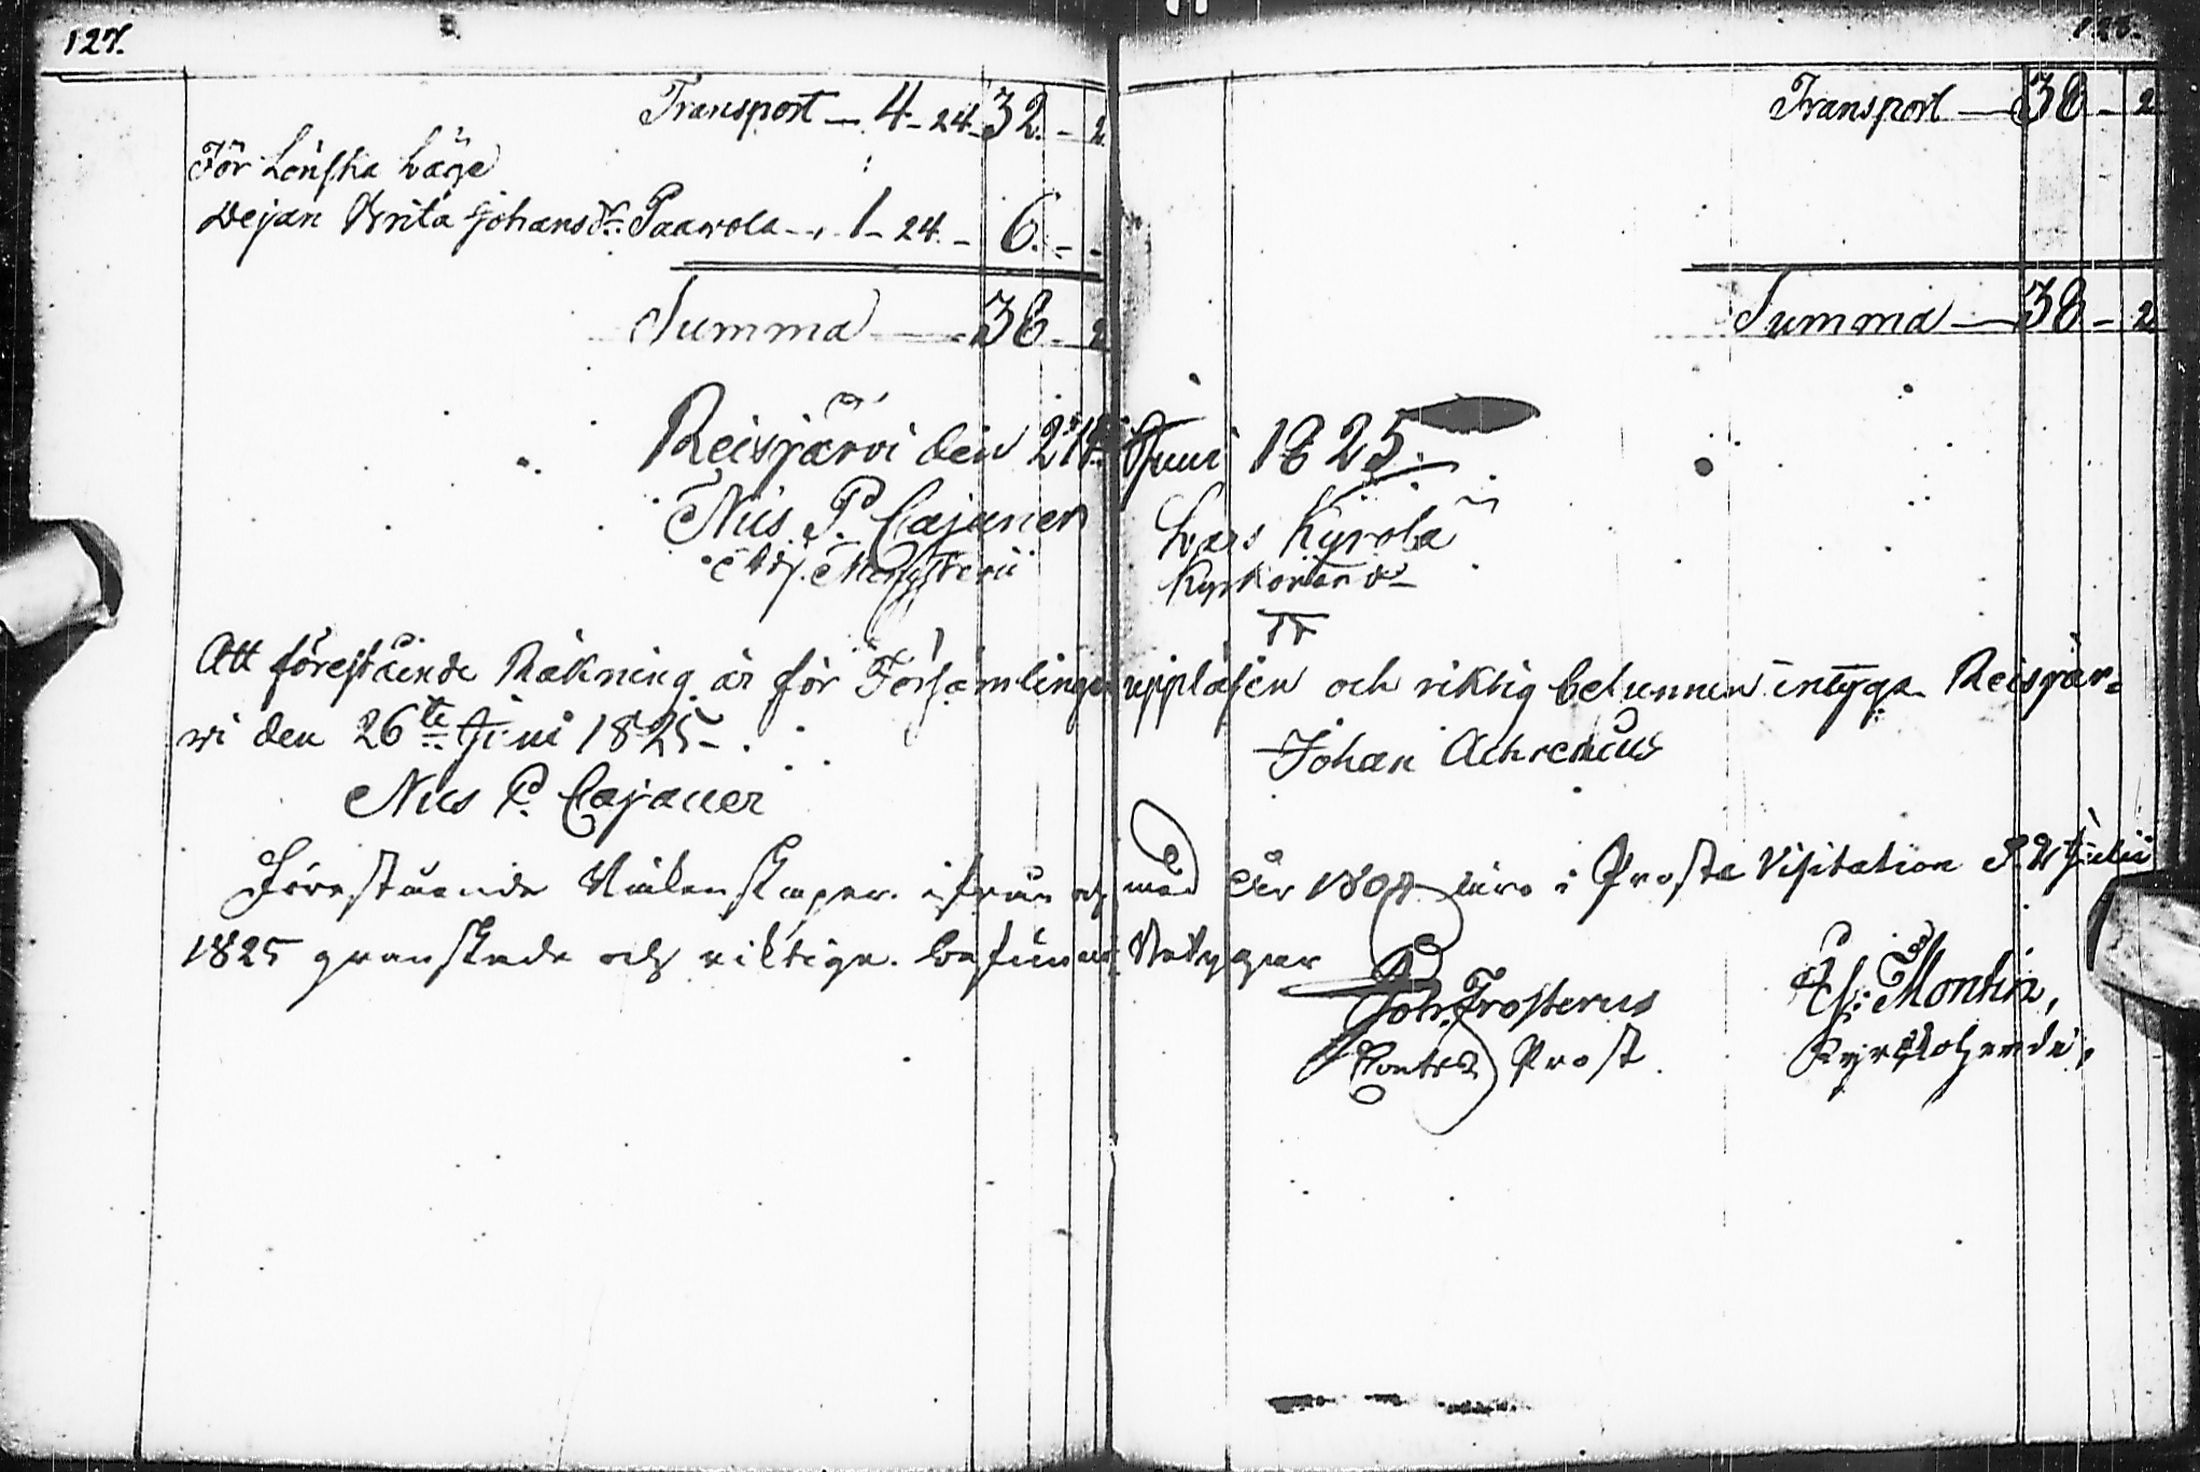 127.
128.
Transport — 4 - 24 - 32. - 2.
För Lönska Läge
Dejan Brita Johansdr Paawola - 1 - 24 - 6. - -
Summa — 38 - 2
Transport — 38 - 2
Summa — 38 - 2
Reisjärvi den Juni 1825.
Nils P. Cajaner
Adj. Ministerii
Lars Kyrola
Kyrkovärd
Att förestående Räkning är för Församlingen uppläsen och riktig befunnen intyga Reisjär=
wi den 26te Juni 1825.
Nils P. Cajaner
Johan Achrenius
Förestående Räkenskaper ifrån och med År 1808 äro i Prosta Visitation d. 2 Julii
1825 granskade och riktige befunne Betygar
Joh. Frosterus
Contr. Prost.
Es. Montin,
Kyrkoherde.